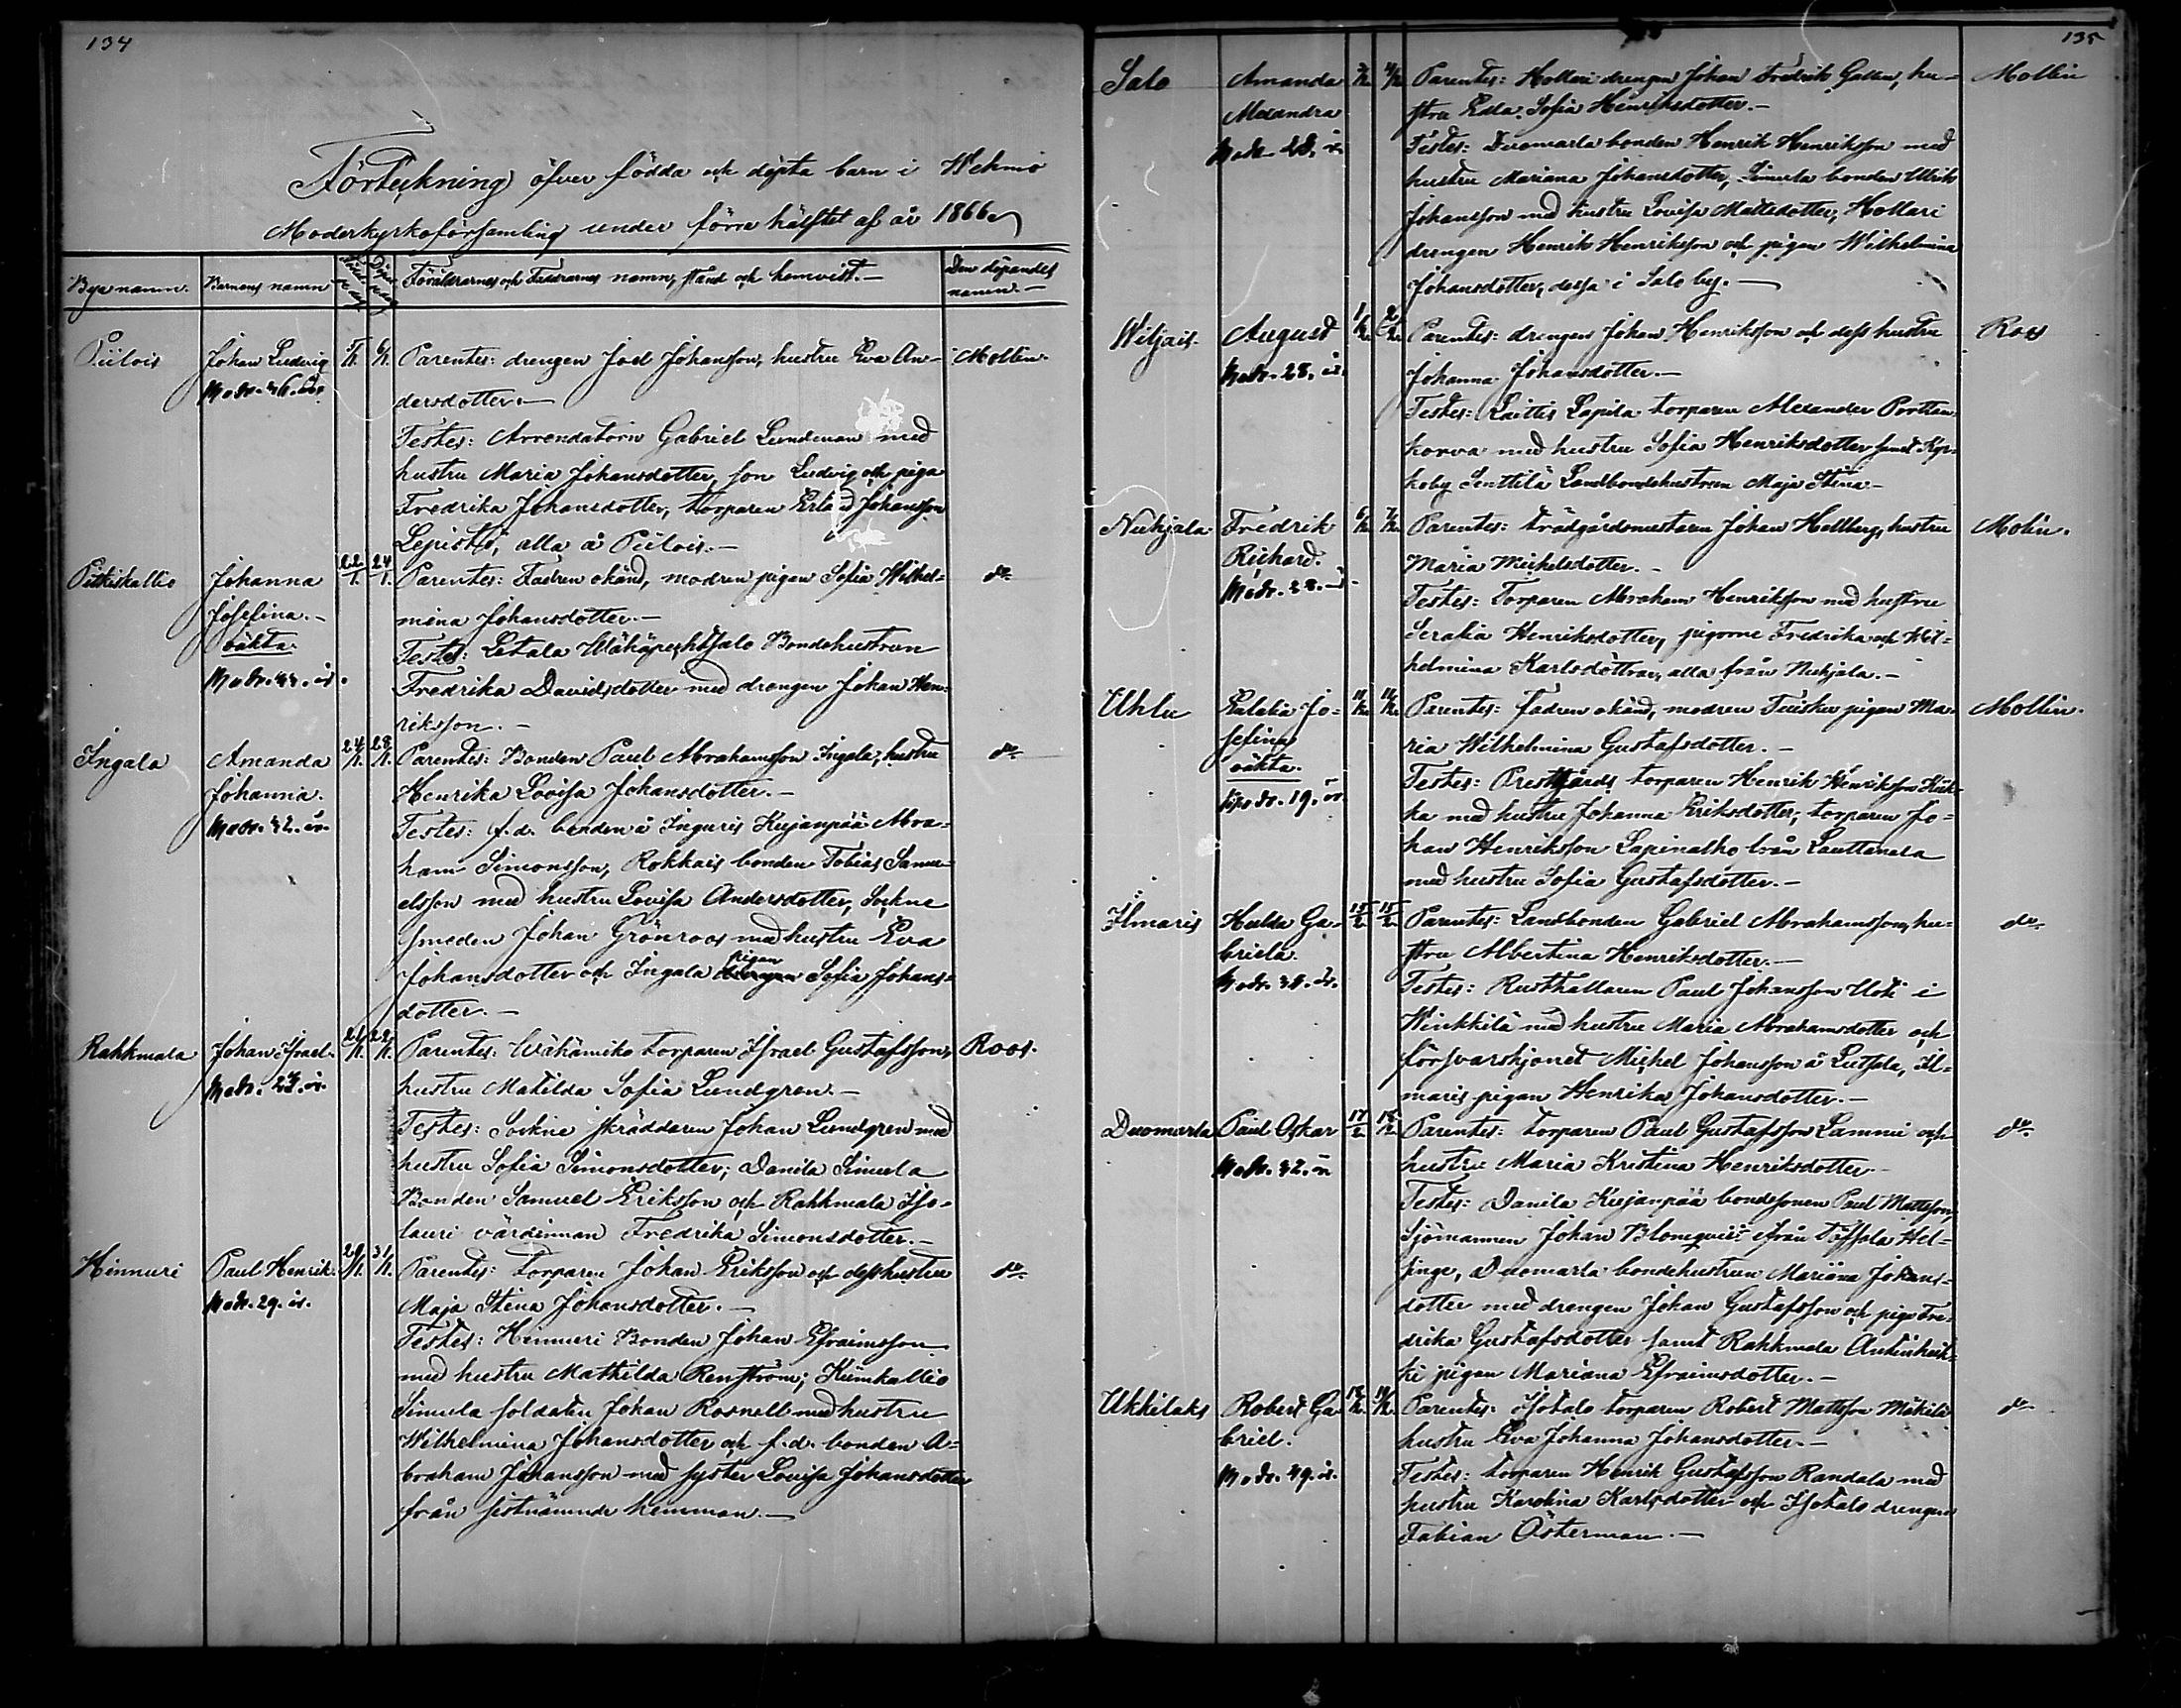 134
Förteckning öfver födda och döpta barn i Wehmo
Moderkyrkoförsamling under förra hälftet af år 1866
Bya namn. Barnens namn Föräldrarnes och Faddrarnes namn, stånd och hemvist. Den döpandes
namn.
Piilois Johan Ludvig 5/1. 6/1. Parentes: drengen Joel Johansson, hustru Eva An- Mollin.
Modr. år dersdotter.
Testes: Arrendatorn Gabriel Lundman med
hustru Maria Johansdotter, son Ludvig och piga
Fredrika Johansdotter, torparen Erland Johansson
Lepistö, alla å Piilois.
Pitkiskallio Johanna 22/1. 24/1. Parentes: Fadren okänd, modren pigan Sofia Wilhel= do
Josefina. mina Johansdotter.
oäkta. Testes: Letala Wähäperhtsalo Bondehustrun
Modr. år. Fredrika Davidsdotter med drengen Johan Hen=
riksson.
Ingala Amanda 24/1. 28/1. Parentes: Bonden Paul Abrahamsson Ingala, hustru do
Johanna. Henrika Lovisa Johansdotter.
Modr. 42. år. Testes: f.d. bonden å Inguris Kujanpää Abra=
ham Simonsson, Rokkais bonden Tobias Samu=
elsson med hustru Lovisa Andersdotter, Sockne
smeden Johan Grönroos med hustru Eva
Johansdotter och Ingala pigan Sofia Johans=
dotter.
Rahkmala Johan Israel. 21/1. 22/1. Parentes: Wähämiko torparen Israel Gustafsson, Roos.
Modr. 24. år. hustru Matilda Sofia Lundgren.
Testes: Sockne skräddaren Johan Lundgren med
hustru Sofia Simonsdotter; Danila Simula
Bonden Samuel Eriksson och Rahkmala Iso-
lauri värdinnan Fredrika Simonsdotter.
Hinnuri Paul Henrik. 29/1. 31/1. Parentes: Torparen Johan Eriksson och dess hustru do
Modr. 29. år. Maja Stina Johansdotter.
Testes: Hinnuri Bonden Johan Efraimsson
med hustru Mathilda Renström; Kiimkallio
Simula soldaten Johan Rosnell med hustru
Wilhelmina Johansdotter och f.d. bonden A=
braham Johansson med syster Lovisa Johansdotter
från sistnämnde hemman.
135
Salo Amanda Parentes: Hollari drengen Johan Fredrik Gallen, hu- Mollin
Alexandra stru Edla Sofia Henriksdotter.
Modr. 28. år. Testes: Duomarla bonden Henrik Henriksson med
hustru Mariana Johansdotter, Simula bonden Ulrik
Johansson med hustru Lovisa Mattsdotter, Hollari
drengen Henrik Henriksson och pigan Wilhelmina
Johansdotter, dessa i Salo by.
Wiljais August 1/2. 2/2. Parentes: drengen Johan Henriksson och dess hustru Roos
Modr. 28. år. Johanna Johansdotter.
Testes: Laittis Lapila torparen Alexander Porttan-
korva med hustru Sofia Henriksdotter samt Kyr-
koby Senttilä Landbondehustrun Maja Stina
Nuhjala Fredrik 6/2. 7/2. Parentes: trädgårdsmestaren Johan Hellberg, hustru Molin.
Richard. Maria Michelsdotter.
Modr. 28. år. Testes: Torparen Abraham Henriksson med hustru
Serafia Henriksdotter, pigorne Fredrika och Wil=
helmina Karlsdöttrar, alla från Nuhjala.
Uhlu Eulalia Jo= 11/2. Parentes: Fadren okänd, modren Tuisku pigan Ma- Mollin.
sefina ria Wilhelmina Gustafsdotter.
oäkta. Testes: Prestgårds torparen Henrik Henriksson Kuk-
Modr. 19. år. ka med hustru Johanna Eriksdotter, torparen Jo=
han Henriksson Lapinalho från Lauttanala
med hustru Sofia Gustafsdotter.
Ilmaris Hulda Ga- 13/2. 15/2. Parentes: Landbonden Gabriel Abrahamsson, hu= do
briela. stru Albertina Henriksdotter.
Modr. år. Testes: Rusthållaren Paul Johansson Uoti i
Winkkilä med hustru Maria Abrahamsdotter och
försvarskjonet Michel Johansson å Lutsala, Il=
maris pigan Henrika Johansdotter.
Duomarla Paul Oskar 17/2. 18/2. Parentes: torparen Paul Gustafsson Lammi och do
Modr. 42. år hustru Maria Kristina Henriksdotter
Testes: Danila Kujanpää bondesonen Paul Mattsson,
Sjömannen Johan Blomqvist från Töfsala Hel=
singe, Duomarla bondehustrun Mariana Johans=
dotter med drengen Johan Gustafsson och piga Fre=
drika Gustafsdotter samt Rahkmala Antinheik=
ki pigan Mariana Efraimsdotter.
Ukkilaks Robert Ga- 18/2. 19/2. Parentes: Isotalo torparen Robert Mattsson Mäkilä do
briel. hustru Eva Johanna Johansdotter.
Modr. 49. år. Testes: torparen Henrik Gustafsson Randala med
hustru Karolina Karlsdotter och Isotalo drengen
Fabian Österman.